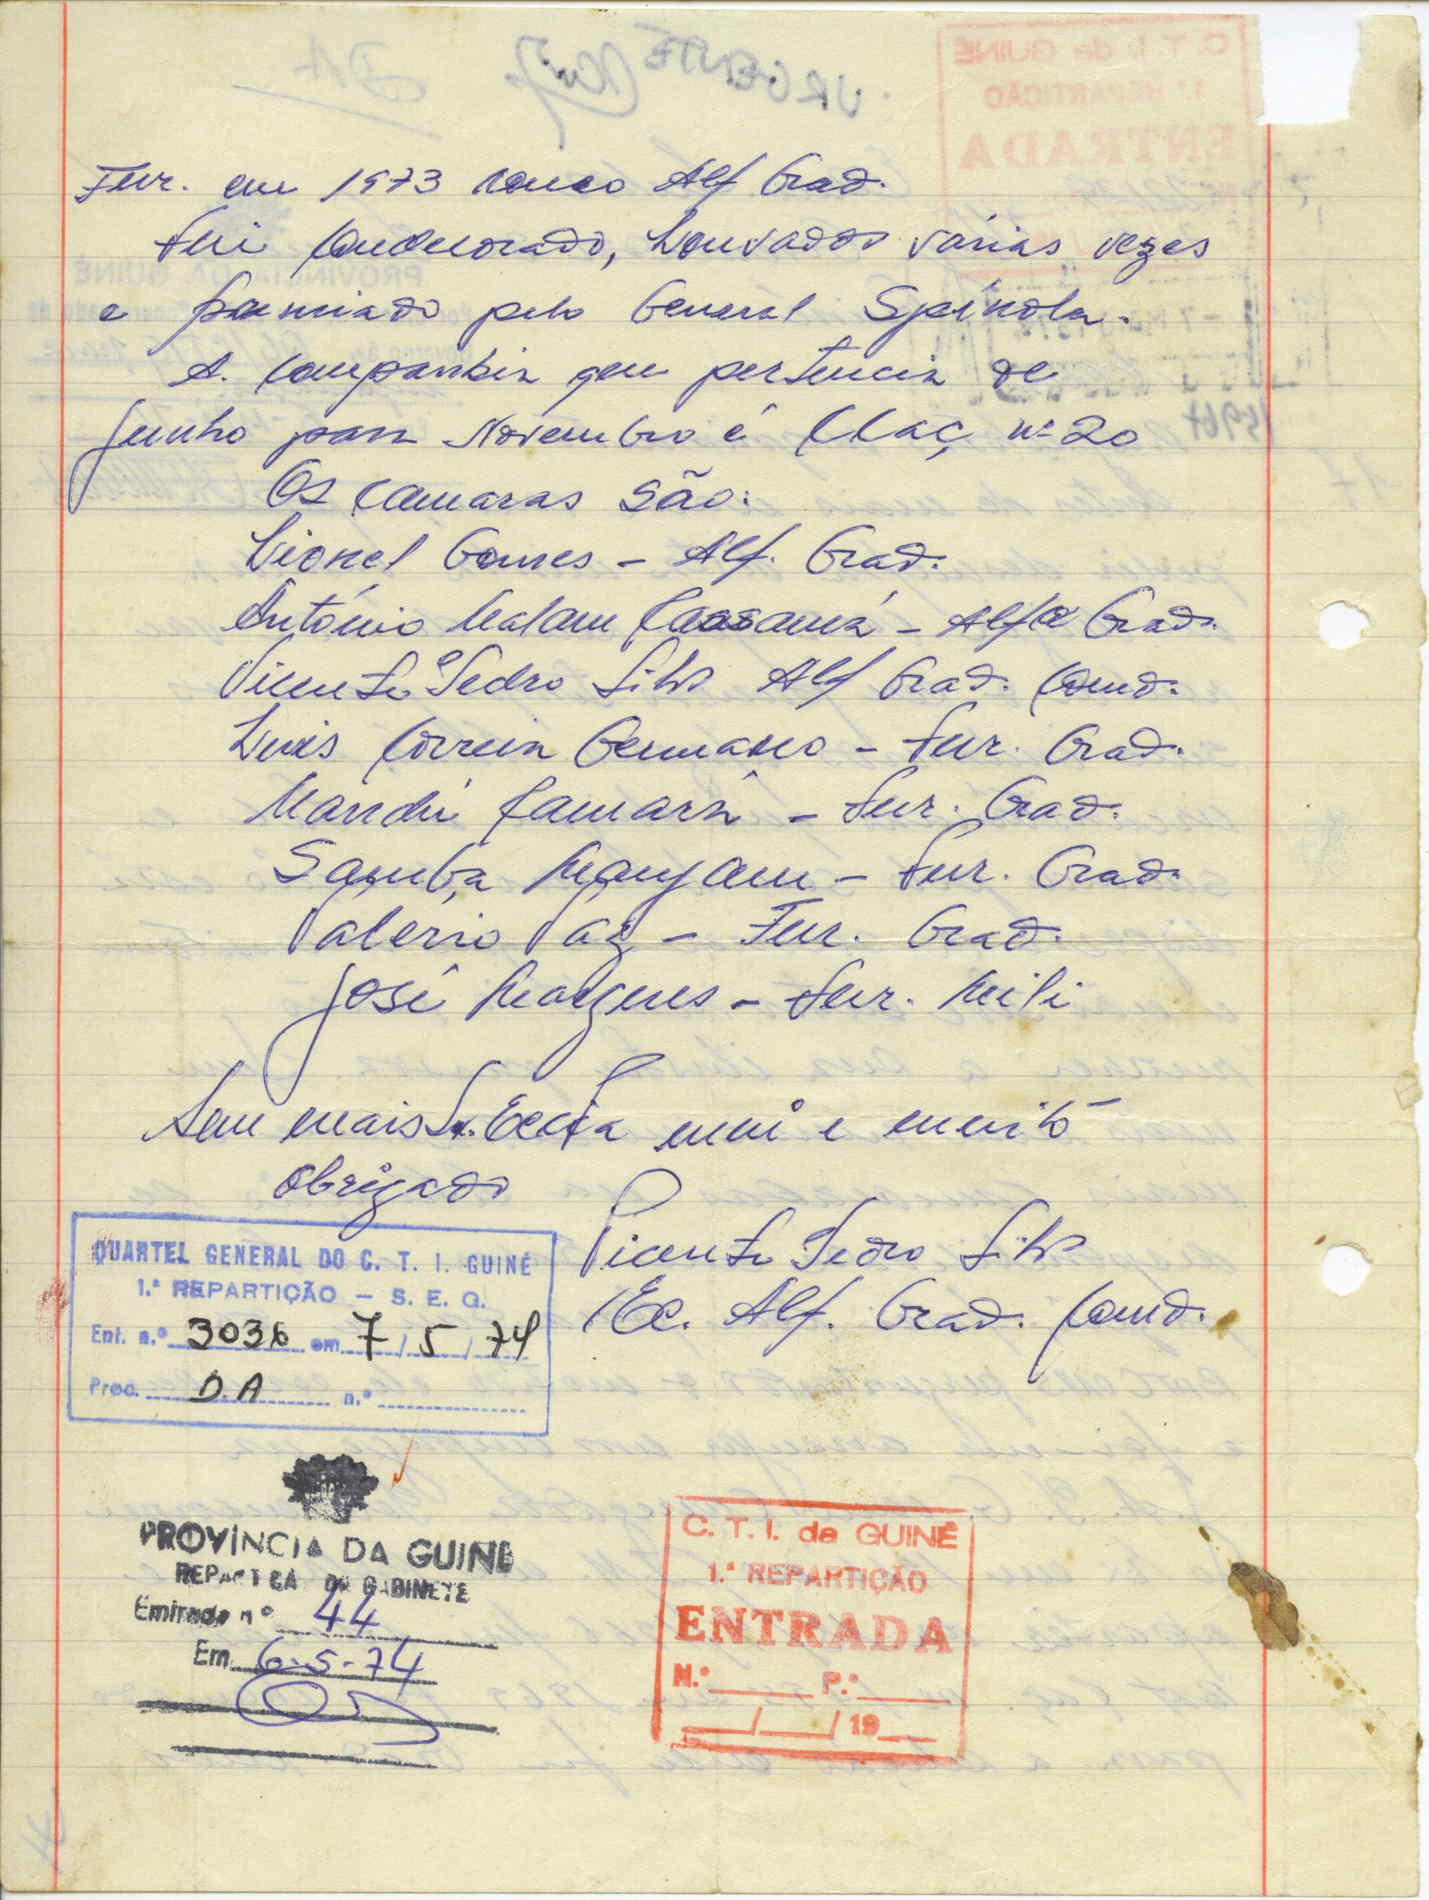 Fur. em 1973 como Alf Grad.
Fui Condecorado, Louvados várias vezes
e premiado pelo General Spínola.
A. Companhia que pertencia de
Junho para Novembro é CCaç nº 20
Os Camaras são:
Lionel Gomes - Alf. Grad.
António Malam Cassamá - Alf Grad.
Vicente Pedro Silva Alf Grad. Comd.
Luis Correia Germano - Fur. Grad.
Mandu Camará - Fur. Grad.
Samba Manjam - Fur. Grad.
Valerio Vaz - Fur. Grad.
José Marques - Fur. Mili
Sem mais Sr. mui e muito
Obrigado
Vicente Pedro Silva
Alf. Grad. Comd.
QUARTEL GENERAL DO C. T. I. GUINÉ
1.ª REPARTIÇÃO — S. E. G.
Ent. n.º 3036 em 7/5/74
Proc. D.A n.º
PROVÍNCIA DA GUINÉ
REPARTIÇÃO DO GABINETE
Entrada nº 44
Em 6-5-74
C. T. I. da GUINÉ
1.ª REPARTIÇÃO
ENTRADA
N.º P.º
/ / 19